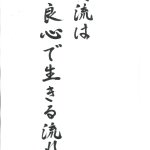 流は
良心で生きる流れ